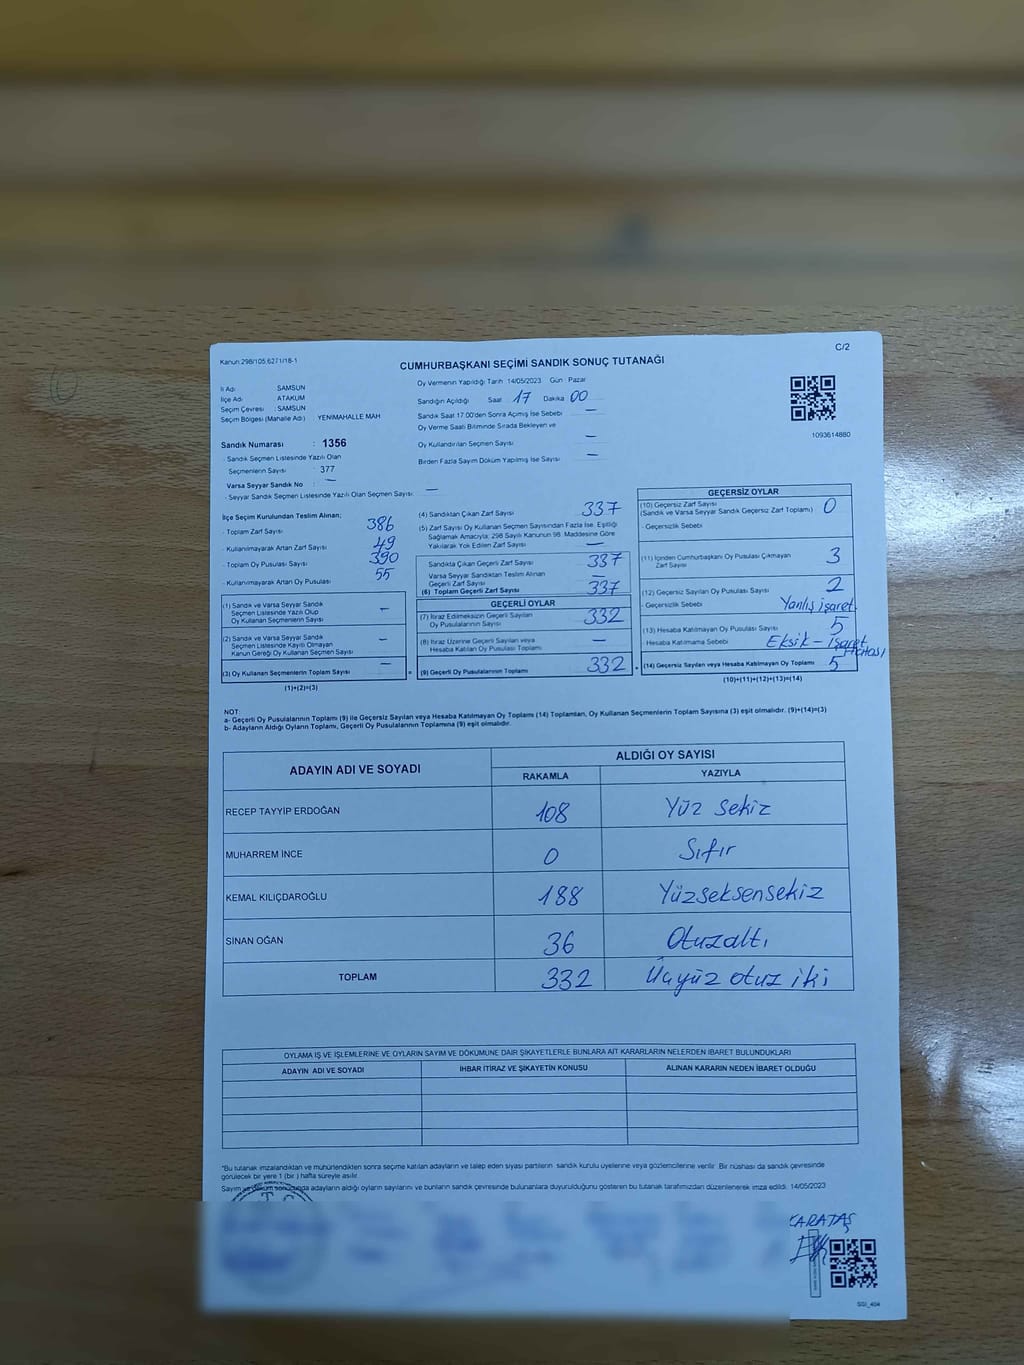 Kanun:298/105,6271/18-1
C/2
CUMHURBAŞKANI SEÇİMİ SANDIK SONUÇ TUTANAĞI
İl Adı SAMSUN
İlçe Adı ATAKUM
Seçim Çevresi : SAMSUN
Seçim Bölgesi (Mahalle Adı) YENİMAHALLE MAH
Sandık Numarası : 1356
Sandık Seçmen Listesinde Yazılı Olan
Seçmenlerin Sayısı : 377
Varsa Seyyar Sandık No : —
- Seyyar Sandık Seçmen Listesinde Yazılı Olan Seçmen Sayısı: —
Oy Vermenin Yapıldığı Tarih 14/05/2023 Gün : Pazar
Sandığın Açıldığı Saat 17 Dakika 00
Sandık Saat 17.00'den Sonra Açılmış İse Sebebi —
Oy Verme Saati Bitiminde Sırada Bekleyen ve
Oy Kullandırılan Seçmen Sayısı —
Birden Fazla Sayım Döküm Yapılmış İse Sayısı —
1093614880
İlçe Seçim Kurulundan Teslim Alınan;
- Toplam Zarf Sayısı 386
- Kullanılmayarak Artan Zarf Sayısı 49
- Toplam Oy Pusulası Sayısı 390
- Kullanılmayarak Artan Oy Pusulası 55
(1) Sandık ve Varsa Seyyar Sandık
Seçmen Listesinde Yazılı Olup
Oy Kullanan Seçmenlerin Sayısı —
(2) Sandık ve Varsa Seyyar Sandık
Seçmen Listesinde Kaydı Olmayan
Kanun Gereği Oy Kullanan Seçmen Sayısı —
(3) Oy Kullanan Seçmenlerin Toplam Sayısı —
(1)+(2)=(3)
(4) Sandıktan Çıkan Zarf Sayısı 337
(5) Zarf Sayısı Oy Kullanan Seçmen Sayısından Fazla İse, Eşitliği
Sağlamak Amacıyla; 298 Sayılı Kanunun 98. Maddesine Göre
Yakılarak Yok Edilen Zarf Sayısı —
Sandıkta Çıkan Geçerli Zarf Sayısı 337
Varsa Seyyar Sandıktan Teslim Alınan
Geçerli Zarf Sayısı —
(6) Toplam Geçerli Zarf Sayısı 337
GEÇERLİ OYLAR
(7) İtiraz Edilmeksizin Geçerli Sayılan
Oy Pusulalarının Sayısı 332
(8) İtiraz Üzerine Geçerli Sayılan veya
Hesaba Katılan Oy Pusulası Toplamı —
(9) Geçerli Oy Pusulalarının Toplamı 332
GEÇERSİZ OYLAR
(10) Geçersiz Zarf Sayısı
(Sandık ve Varsa Seyyar Sandık Geçersiz Zarf Toplamı) 0
- Geçersizlik Sebebi
(11) İçinden Cumhurbaşkanı Oy Pusulası Çıkmayan
Zarf Sayısı 3
(12) Geçersiz Sayılan Oy Pusulası Sayısı 2
- Geçersizlik Sebebi Yanlış işaret
(13) Hesaba Katılmayan Oy Pusulası Sayısı 5
Hesaba Katılmama Sebebi Eksik - işaret Hatası
(14) Geçersiz Sayılan veya Hesaba Katılmayan Oy Toplamı 5
(10)+(11)+(12)+(13)=(14)
NOT:
a- Geçerli Oy Pusulalarının Toplamı (9) ile Geçersiz Sayılan veya Hesaba Katılmayan Oy Toplamı (14) Toplamları, Oy Kullanan Seçmenlerin Toplam Sayısına (3) eşit olmalıdır. (9)+(14)=(3)
b- Adayların Aldığı Oyların Toplamı, Geçerli Oy Pusulalarının Toplamına (9) eşit olmalıdır.
ADAYIN ADI VE SOYADI
ALDIĞI OY SAYISI
RAKAMLA YAZIYLA
RECEP TAYYİP ERDOĞAN 108 Yüz Sekiz
MUHARREM İNCE 0 Sıfır
KEMAL KILIÇDAROĞLU 188 Yüzseksensekiz
SİNAN OĞAN 36 Otuzaltı
TOPLAM 332 Üçyüz otuz iki
OYLAMA İŞ VE İŞLEMLERİNE VE OYLARIN SAYIM VE DÖKÜMÜNE DAİR ŞİKAYETLERLE BUNLARA AİT KARARLARIN NELERDEN İBARET BULUNDUKLARI
ADAYIN ADI VE SOYADI İHBAR İTİRAZ VE ŞİKAYETİN KONUSU ALINAN KARARIN NEDEN İBARET OLDUĞU
*Bu tutanak imzalandıktan ve mühürlendikten sonra seçime katılan adayların ve talep eden siyasi partilerin sandık kurulu üyelerine veya gözlemcilerine verilir. Bir nüshası da sandık çevresinde
görülecek bir yere 1 (bir) hafta süreyle asılır.
Sayım ve döküm sonucunda adayların aldığı oyların sayılarını ve bunların sandık çevresinde bulunanlara duyurulduğunu gösteren bu tutanak tarafımızdan düzenlenerek imza edildi. 14/05/2023
T.C.
KARATAŞ
SGI_404